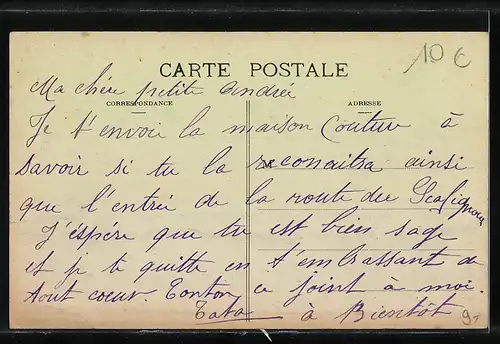 10 €
CARTE POSTALE
Ma chère petite Andrée
CORRESPONDANCE
ADRESSE
Je t'envoie la maison Couture à
savoir si tu la reconaitra ainsi
que l'entrée de la route de
J'éspére que tu est bien sage
et je te quitte en t'embrassant de
tout coeur. Tonton ce joint à moi.
Tata à Bientôt